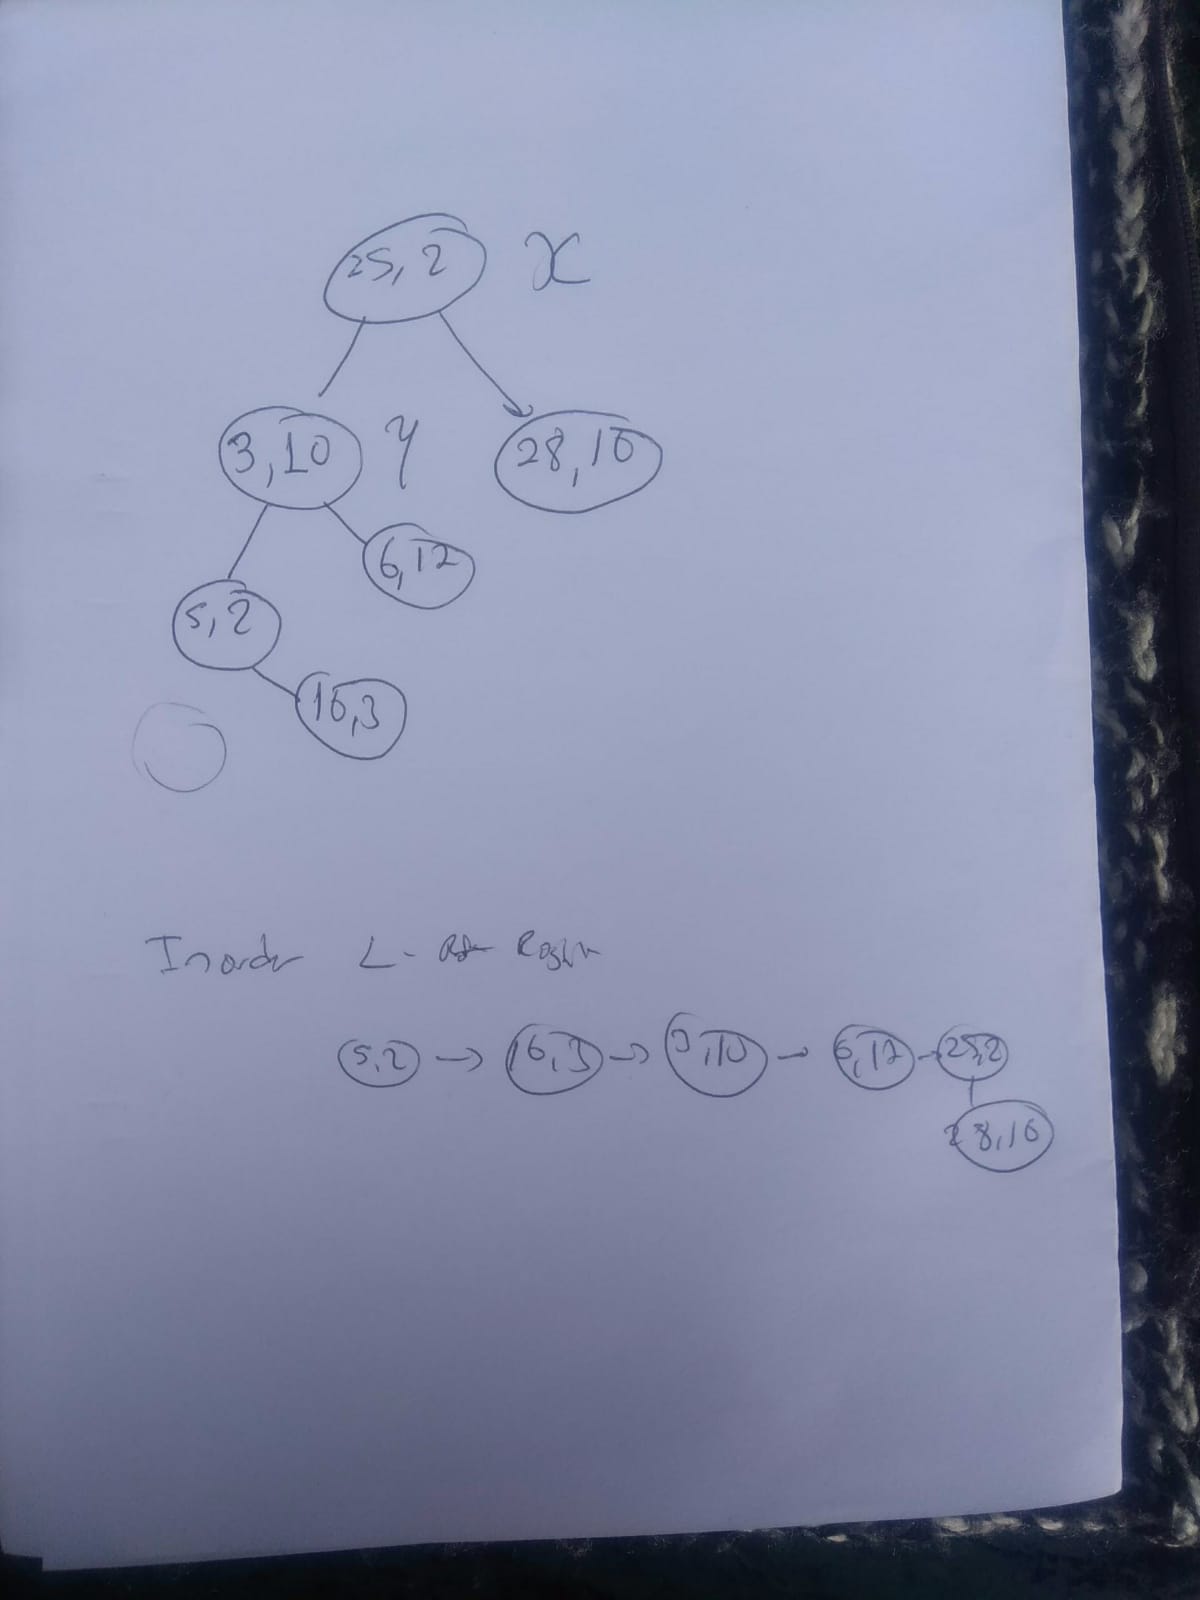 25, 2 x
3, 10 y 28, 10
6, 12
5, 2
16, 3
Inorder L-
5, 2 → 16, 3 → 3, 10 → 6, 12 → 25, 2
28, 10